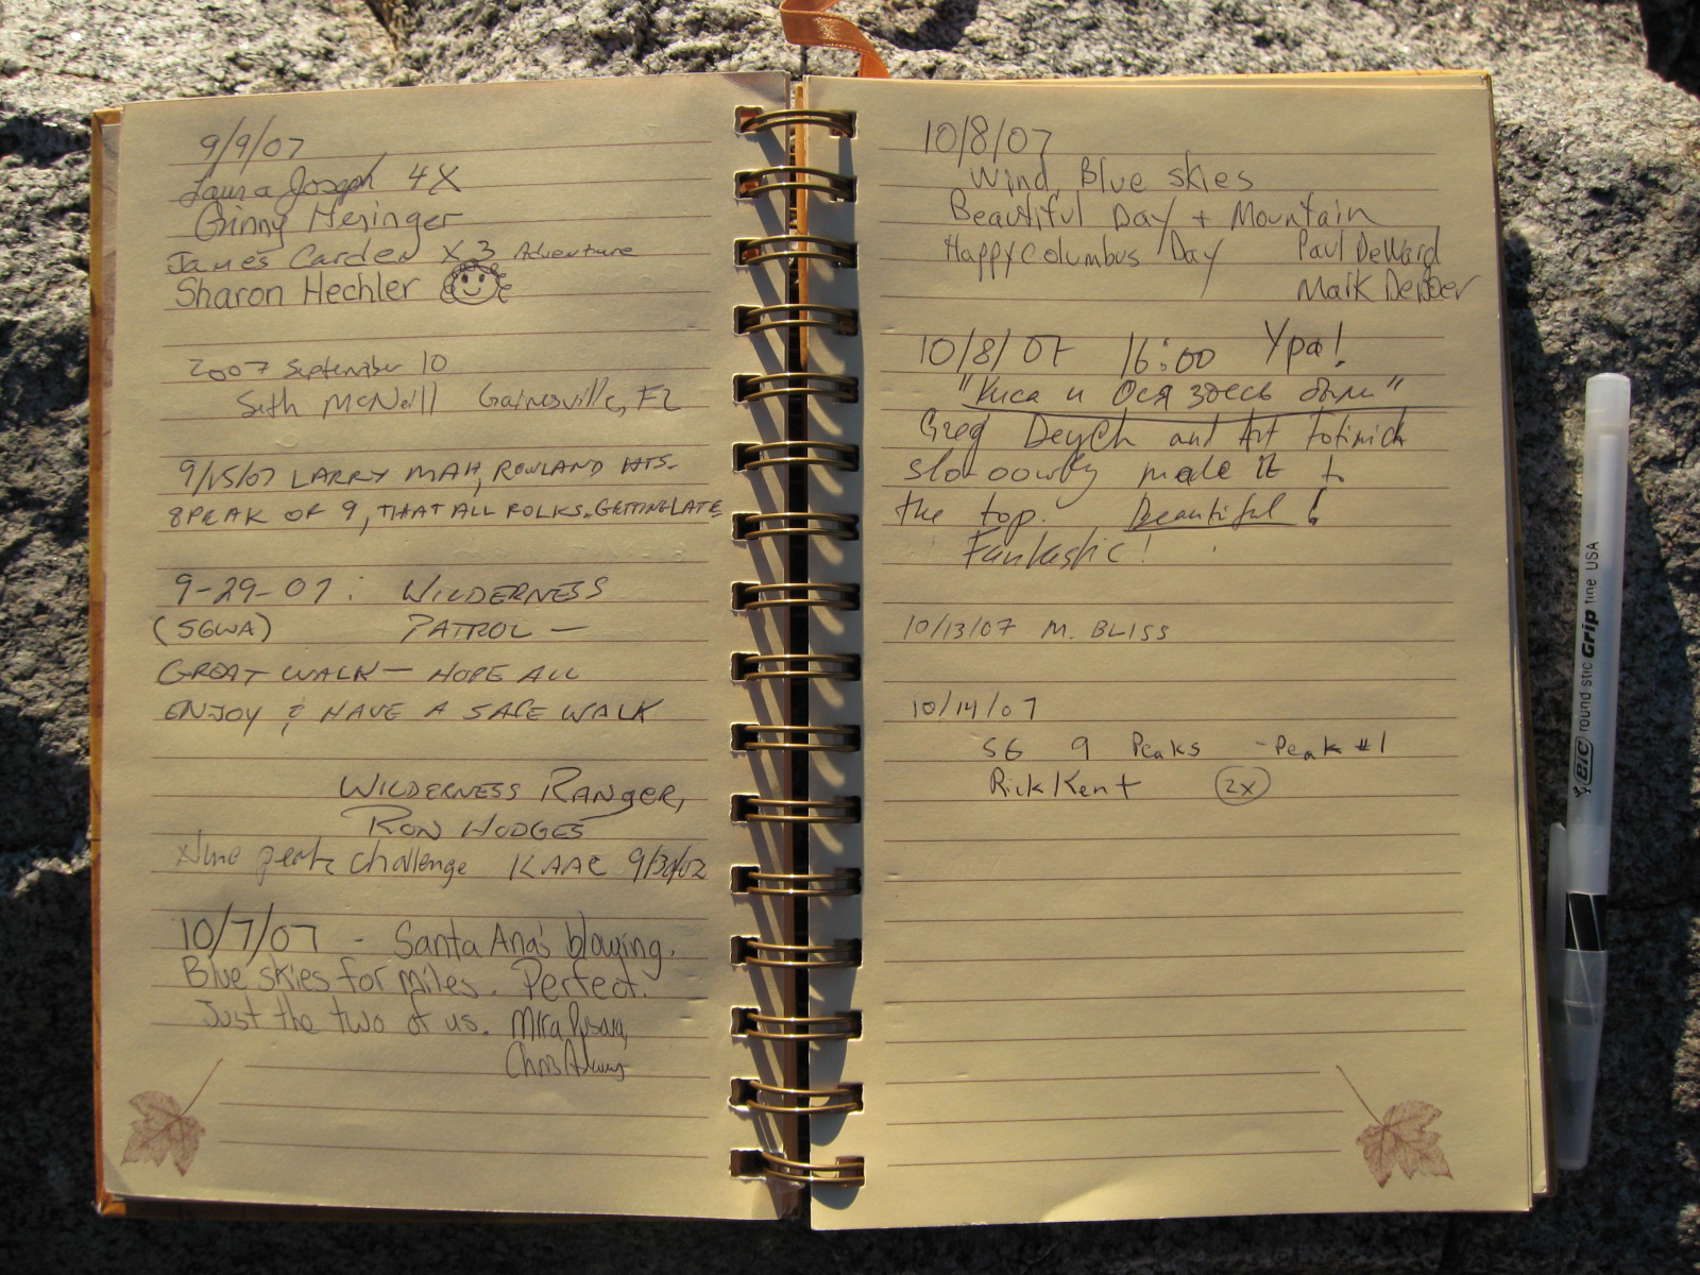 9/9/07
Laura Joseph 4X
Ginny Heringer
James Carden X 3 Adventure
Sharon Hechler
2007 September 10
Seth McNeill Gainesville, FL
9/15/07 LARRY MAH, ROWLAND HTS.
8 PEAK OF 9, THAT ALL FOLKS. GETTING LATE
9-29-07: WILDERNESS
(SGWA) PATROL —
GREAT WALK — HOPE ALL
ENJOY & HAVE A SAFE WALK
WILDERNESS RANGER,
RON HODGES
Nine peak challenge 9/30/07
10/7/07 - Santa Ana's blowing.
Blue skies for miles. Perfect.
Just the two of us. Mira
Chris
10/8/07
Wind, Blue skies
Beautiful Day + Mountain
Happy Columbus Day Paul DeWard
Mark
10/8/07 16:00 Ура!
"Киса и Ося здесь были"
Greg Deych and Art
slo-ooowly made it to
the top. Beautiful!
Fantastic!
10/13/07 M. BLISS
10/14/07
SG 9 Peaks - Peak #1
Rick Kent 2X
BIC round stic Grip fine USA